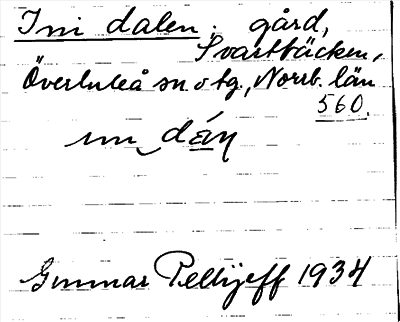 Ini dalen. gård,
Svartbäcken,
Överluleå sn. o tg., Norrb. län
560.
inı‿dáɳ
Gunnar Pellijeff 1934